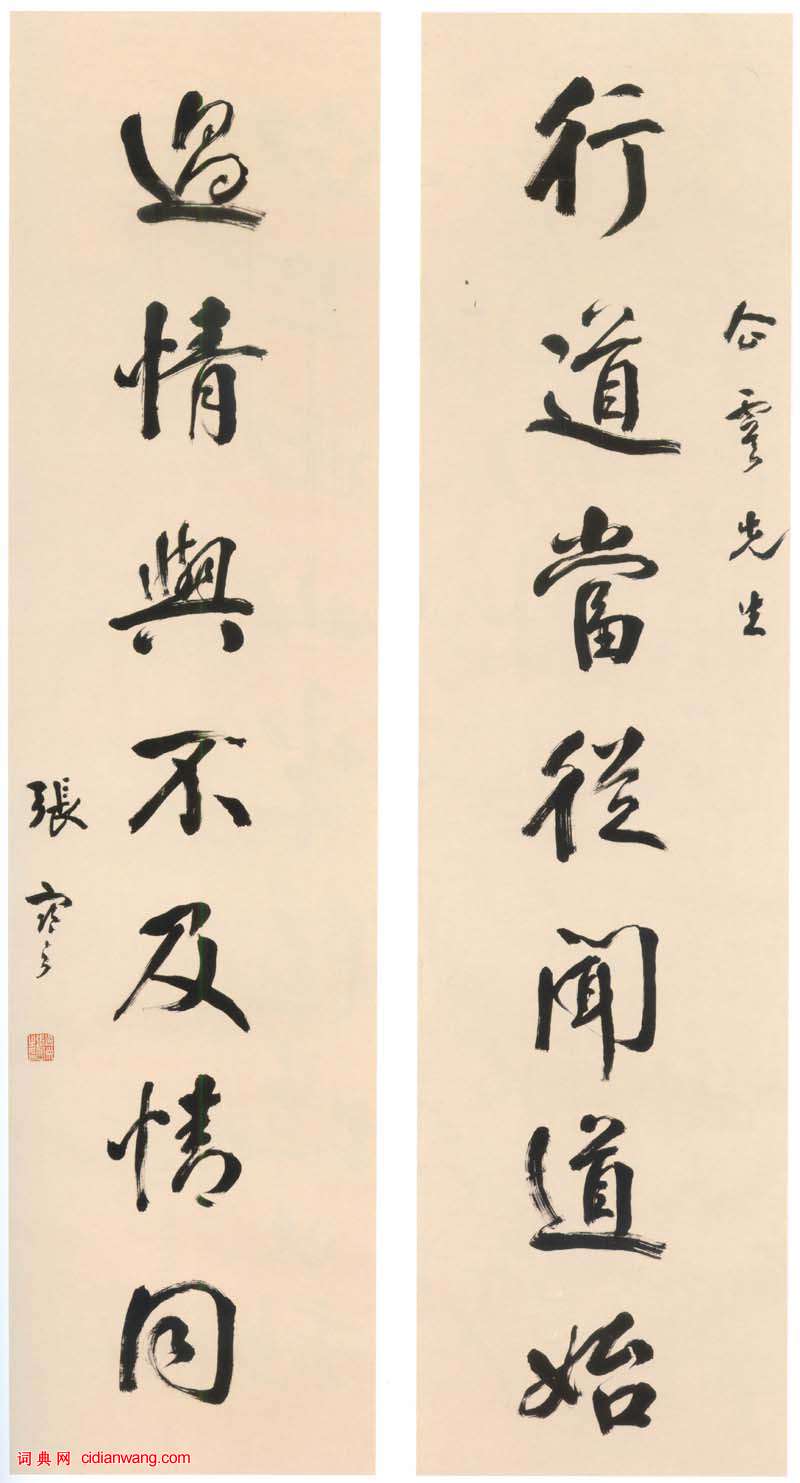 行道當從聞道始
企雲先生
過情與不及情同
張寒月
词典网 cidianwang.com